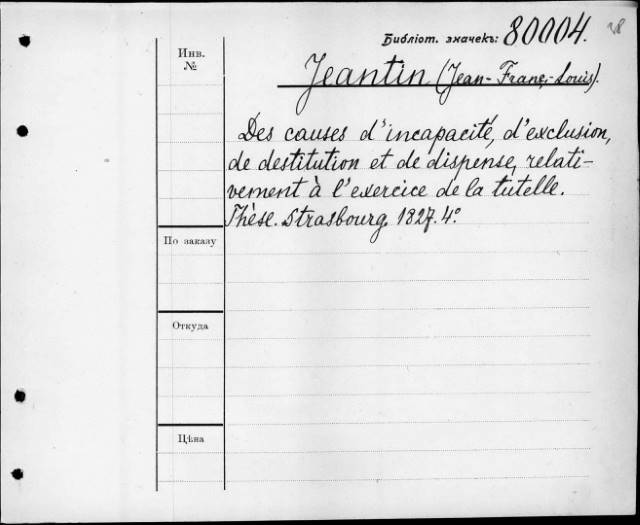 Библіот. значекъ: 80004.
Инв.
№
Jeantin (Jean-Franç.-Louis).
Des causes d'incapacité, d'exclusion,
de destitution et de dispense, relati-
vement à l'exercice de la tutelle.
Thèse. Strasbourg. 1827. 4º.
По заказу
Откуда
Цѣна